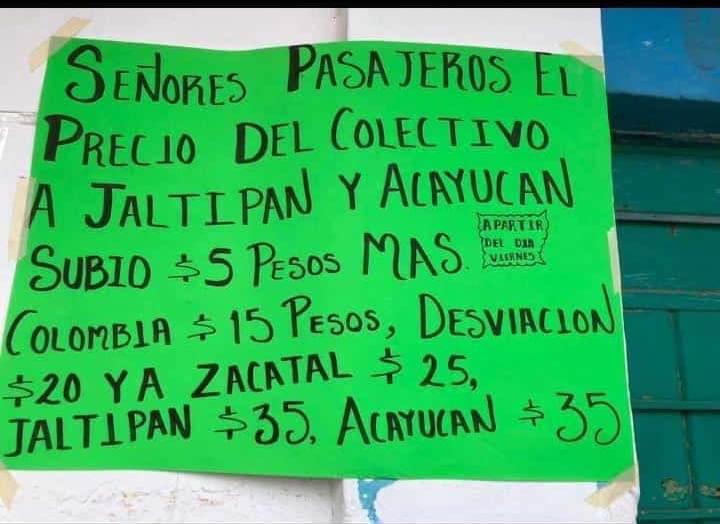 SEÑORES PASAJEROS EL
PRECIO DEL COLECTIVO
A JALTIPAN Y ACAYUCAN
SUBIO $5 PESOS MAS.
A PARTIR
DEL DIA
VIERNES
COLOMBIA $15 PESOS, DESVIACION
$20 Y A ZACATAL $25,
JALTIPAN $35, ACAYUCAN $35